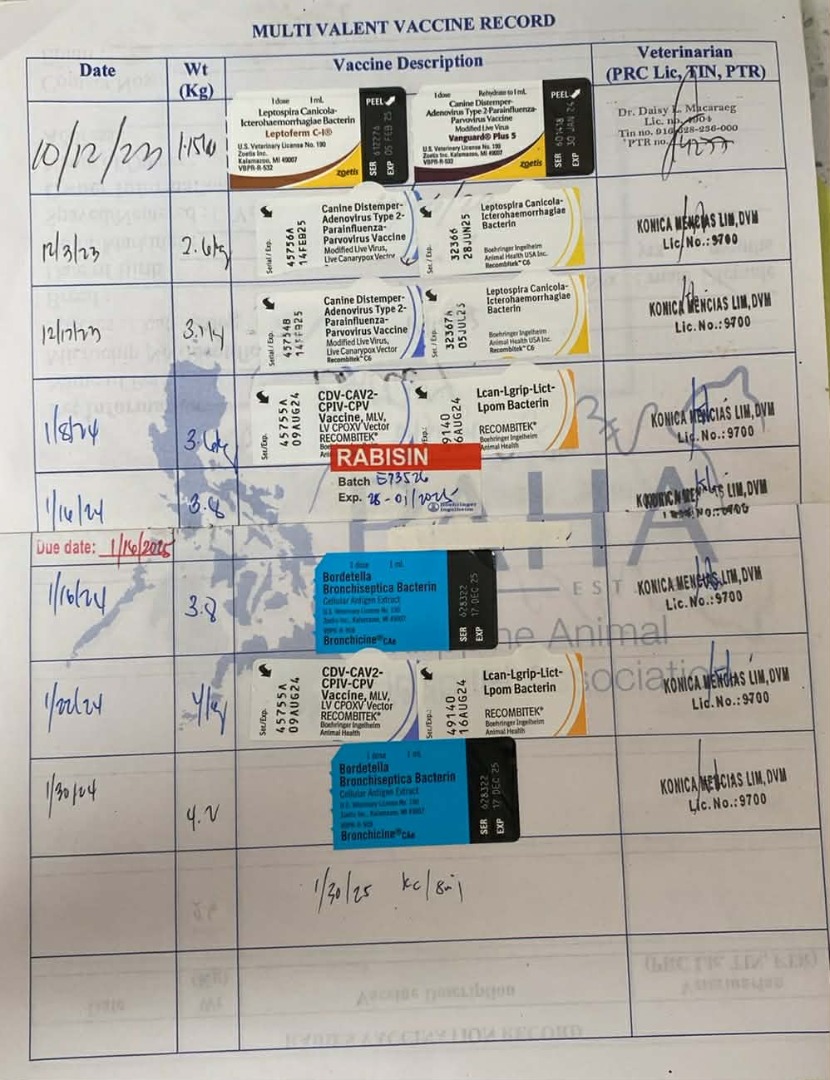 MULTI VALENT VACCINE RECORD
Date
Wt
(Kg)
Vaccine Description
Veterinarian
(PRC Lic, TIN, PTR)
10/12/23
1 dose 1 mL
Leptospira Canicola-
Icterohaemorrhagiae Bacterin
Leptoferm C-I®
U.S. Veterinary License No. 190
Zoetis Inc.
Kalamazoo, MI 49007
VBPR-R-532
zoetis
PEEL
SER
EXP 05 FEB 25
1 dose Rehydrate to 1 mL
Canine Distemper-
Adenovirus Type 2-Parainfluenza-
Parvovirus Vaccine
Modified Live Virus
Vanguard® Plus 5
U.S. Veterinary License No. 190
Zoetis Inc.
Kalamazoo, MI 49007
zoetis
PEEL
SER
EXP 30 JAN 24
Dr. Daisy L. Macaraeg
Lic. no.
Tin no. 916-928-236-000
PTR no.
12/3/23
2.6kg
Serial / Exp.
45756A
14FEB25
Canine Distemper-
Adenovirus Type 2-
Parainfluenza-
Parvovirus Vaccine
Modified Live Virus,
Live Canarypox Vector
Serial / Exp.
32366
28JUN25
Leptospira Canicola-
Icterohaemorrhagiae
Bacterin
Boehringer Ingelheim
Animal Health USA Inc.
Recombitek® C6
KONICA MENCIAS LIM, DVM
Lic. No.: 9700
12/17/23
3.1kg
Serial / Exp.
45754B
14FEB25
Canine Distemper-
Adenovirus Type 2-
Parainfluenza-
Parvovirus Vaccine
Modified Live Virus,
Live Canarypox Vector
Recombitek® C6
Serial / Exp.
32367A
05JUL25
Leptospira Canicola-
Icterohaemorrhagiae
Bacterin
Boehringer Ingelheim
Animal Health USA Inc.
Recombitek® C6
KONICA MENCIAS LIM, DVM
Lic. No.: 9700
1/8/24
3.6kg
Ser./Exp.
45755A
09AUG24
CDV-CAV2-
CPIV-CPV
Vaccine, MLV,
LV CPOXV Vector
RECOMBITEK®
9140
6AUG24
Lcan-Lgrip-Lict-
Lpom Bacterin
RECOMBITEK®
Boehringer Ingelheim
Animal Health
KONICA MENCIAS LIM, DVM
Lic. No.: 9700
1/16/24
3.8
RABISIN
Batch E73526
Exp. 28-01/2025
Boehringer
Ingelheim
LIM, DVM
Due date: 1/16/2025
PAHA
EST
Animal
1/16/24
3.8
1 dose 1 mL
Bordetella
Bronchiseptica Bacterin
Cellular Antigen Extract
U.S. Veterinary License No. 190
Zoetis Inc., Kalamazoo, MI 49007
Bronchicine® CAe
SER 628322
EXP 17 DEC 25
KONICA MENCIAS LIM, DVM
Lic. No.: 9700
1/22/24
4kg
Ser./Exp.
45755A
09AUG24
CDV-CAV2-
CPIV-CPV
Vaccine, MLV,
LV CPOXV Vector
RECOMBITEK®
Boehringer Ingelheim
Animal Health
Ser./Exp.:
49140
16AUG24
Lcan-Lgrip-Lict-
Lpom Bacterin
RECOMBITEK®
Boehringer Ingelheim
Animal Health
KONICA MENCIAS LIM, DVM
Lic. No.: 9700
1/30/24
4.2
1 dose 1 mL
Bordetella
Bronchiseptica Bacterin
Cellular Antigen Extract
U.S. Veterinary License No. 190
Zoetis Inc., Kalamazoo, MI 49007
Bronchicine® CAe
SER 628322
EXP 17 DEC 25
KONICA MENCIAS LIM, DVM
Lic. No.: 9700
1/30/25 KC/8in1